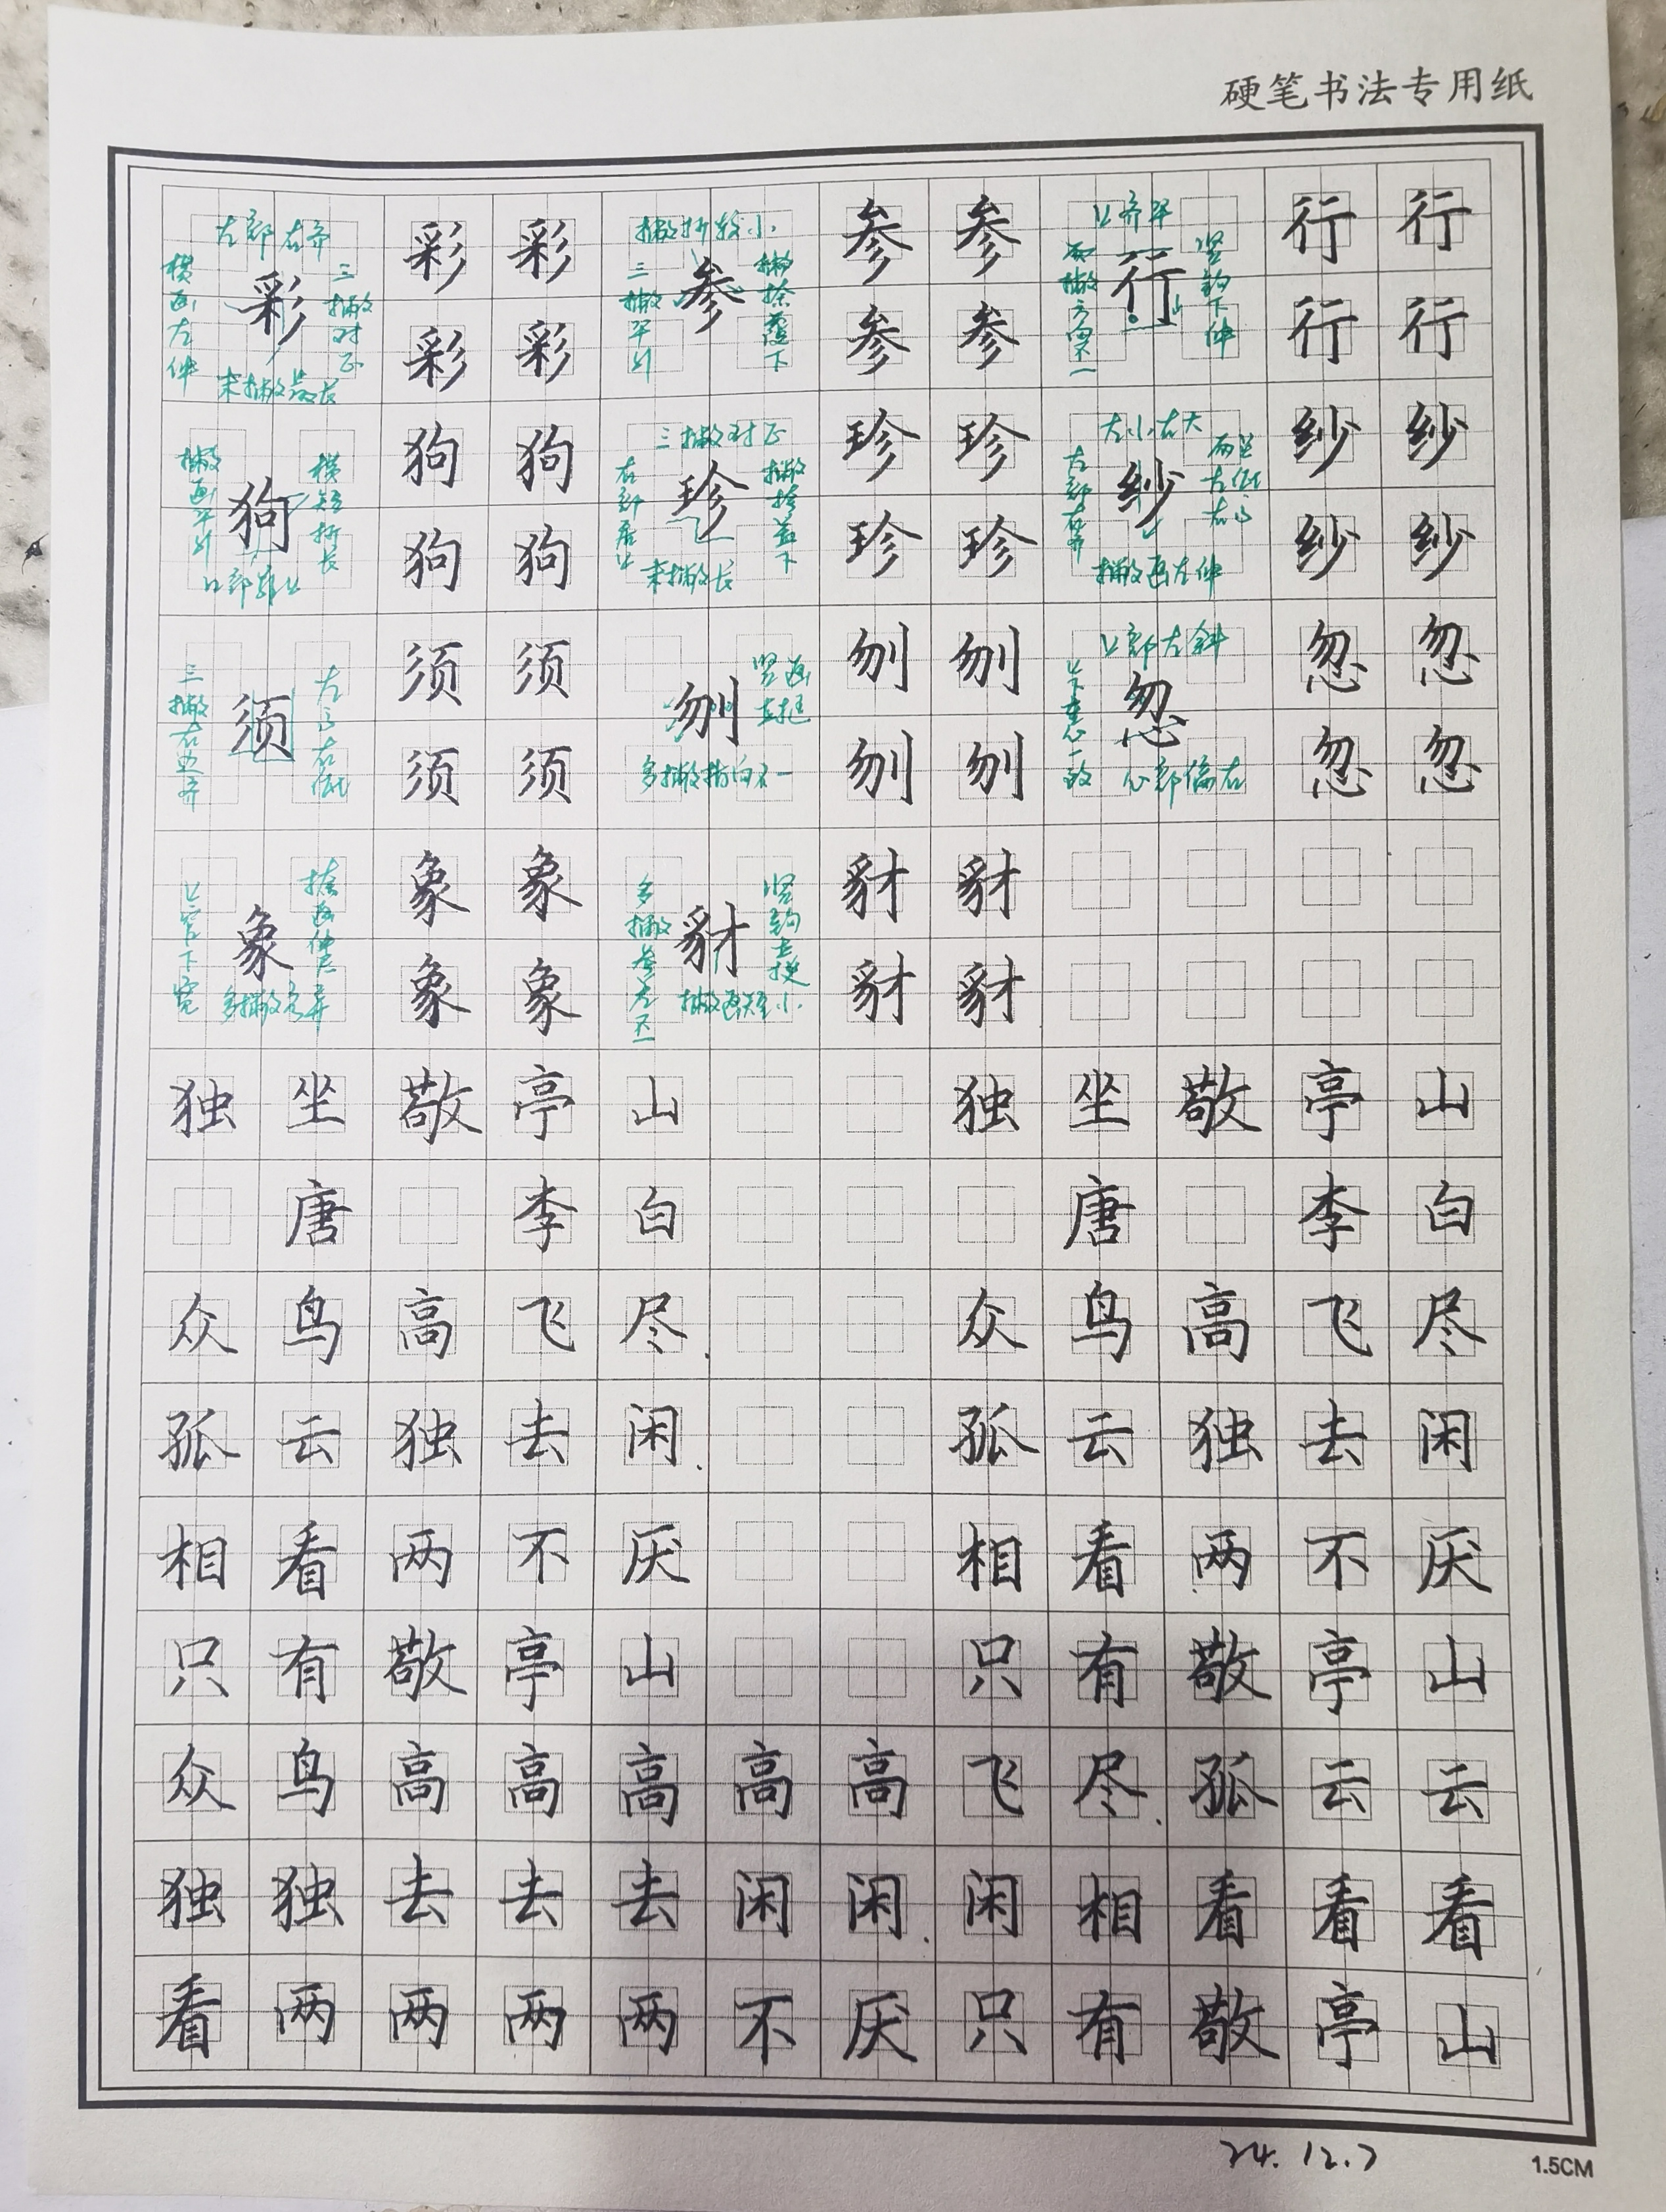 硬笔书法专用纸
左部右齐 横画左伸 三撇对正 末撇最长 彩 彩 彩
撇折较小 三撇平行 撇捺覆下 参 参 参
上齐平 两撇方向不一 竖钩下伸 行 行 行
彩 彩 参 参 行 行
撇画平行 横短折长 口部靠上 狗 狗 狗
三撇对正 右部居上 撇捺盖下 末撇长 珍 珍 珍
左小右大 左部右齐 两点左低右高 撇画左伸 纱 纱 纱
狗 狗 珍 珍 纱 纱
三撇右边齐 左高右低 须 须 须
竖画直挺 多撇指向不一 刎 刎 刎
上部左斜 上下重心一致 心部偏右 忽 忽 忽
须 须 刎 刎 忽 忽
上窄下宽 捺画伸展 多撇 象 象 象
多撇 竖钩直挺 撇画短小 豺 豺 豺
象 象 豺 豺
独坐敬亭山 独坐敬亭山
唐 李白 唐 李白
众鸟高飞尽. 众鸟高飞尽
孤云独去闲. 孤云独去闲
相看两不厌 相看两不厌
只有敬亭山 只有敬亭山
众鸟高高高高高飞尽.孤云云
独独去去去闲闲.闲相看看看
看两两两两不厌只有敬亭山
24.12.7
1.5CM